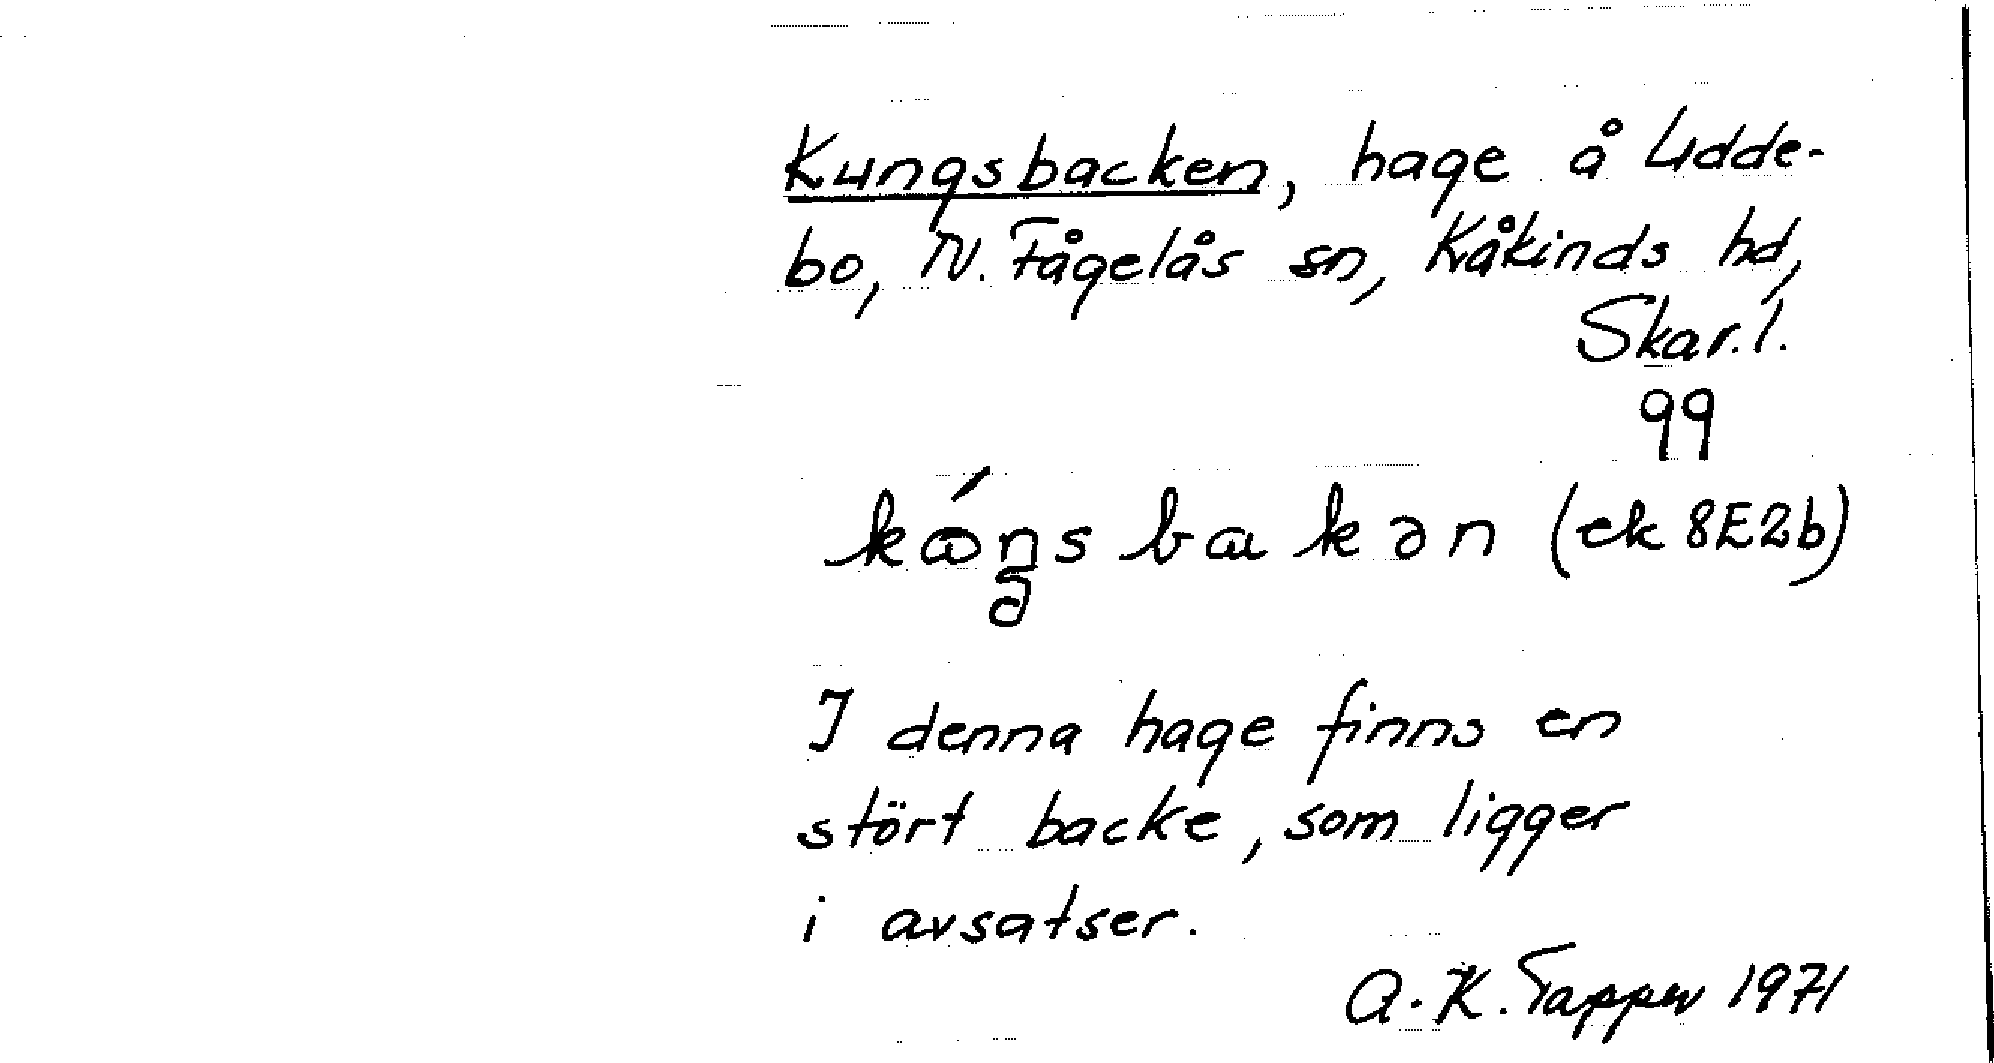 Kungsbacken, hage å Udde-
bo, N. Fågelås sn, Kåkinds hd,
Skar. l.
99
kóŋs bakən (ek 8E2b)
I denna hage finns en
stört backe, som ligger
i avsatser.
A.-K. Tapper 1971